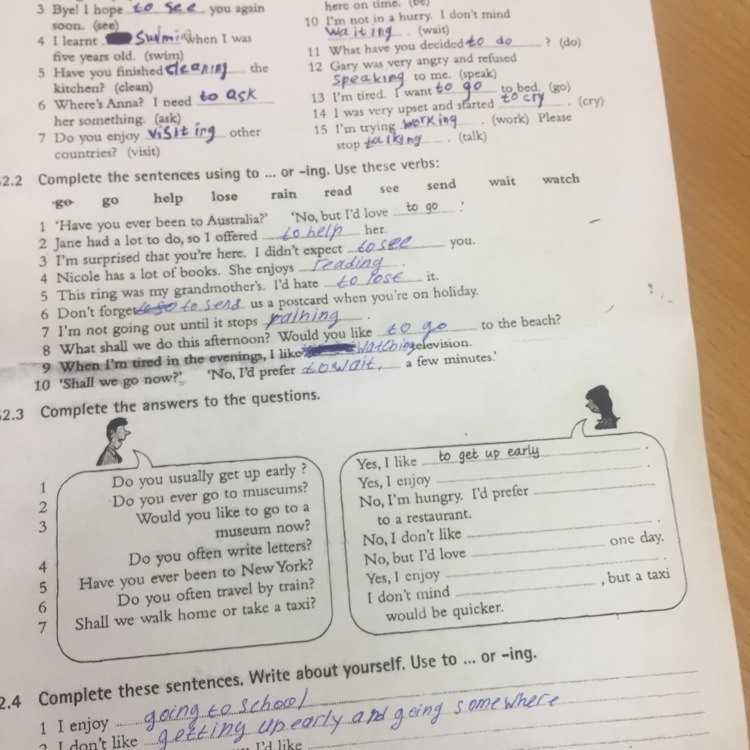 3 Bye! I hope to see you again
soon. (see)
4 I learnt Swimi when I was
five years old. (swim)
5 Have you finished cleaning the
kitchen? (clean)
6 Where's Anna? I need to ask
her something. (ask)
7 Do you enjoy visiting other
countries? (visit)
here on time. (be)
10 I'm not in a hurry. I don't mind
waiting. (wait)
11 What have you decided to do ? (do)
12 Gary was very angry and refused
speaking to me. (speak)
13 I'm tired. I want to go to bed. (go)
14 I was very upset and started to cry. (cry)
15 I'm trying working. (work) Please
stop talking. (talk)
52.2 Complete the sentences using to ... or -ing. Use these verbs:
go go help lose rain read see send wait watch
1 'Have you ever been to Australia?' 'No, but I'd love to go.'
2 Jane had a lot to do, so I offered to help her.
3 I'm surprised that you're here. I didn't expect to see you.
4 Nicole has a lot of books. She enjoys reading.
5 This ring was my grandmother's. I'd hate to lose it.
6 Don't forget to send us a postcard when you're on holiday.
7 I'm not going out until it stops raining.
8 What shall we do this afternoon? Would you like to go to the beach?
9 When I'm tired in the evenings, I like watching television.
10 'Shall we go now?' 'No, I'd prefer to wait, a few minutes.'
52.3 Complete the answers to the questions.
1 Do you usually get up early ?
2 Do you ever go to museums?
3 Would you like to go to a
museum now?
4 Do you often write letters?
5 Have you ever been to New York?
6 Do you often travel by train?
7 Shall we walk home or take a taxi?
Yes, I like to get up early.
Yes, I enjoy .
No, I'm hungry. I'd prefer
to a restaurant.
No, I don't like .
No, but I'd love one day.
Yes, I enjoy .
I don't mind , but a taxi
would be quicker.
2.4 Complete these sentences. Write about yourself. Use to ... or -ing.
1 I enjoy going to school
2 I don't like getting up early and going somewhere
I'd like